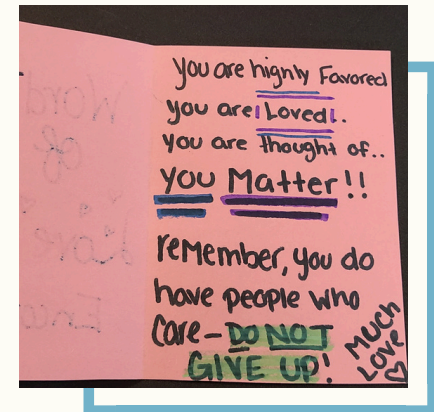 you are highly Favored
you are Loved!.
you are thought of..
you Matter!!
remember, you do
have people who
care – DO NOT
GIVE UP!
MUCH
LOVE ♡
Word
of
Love